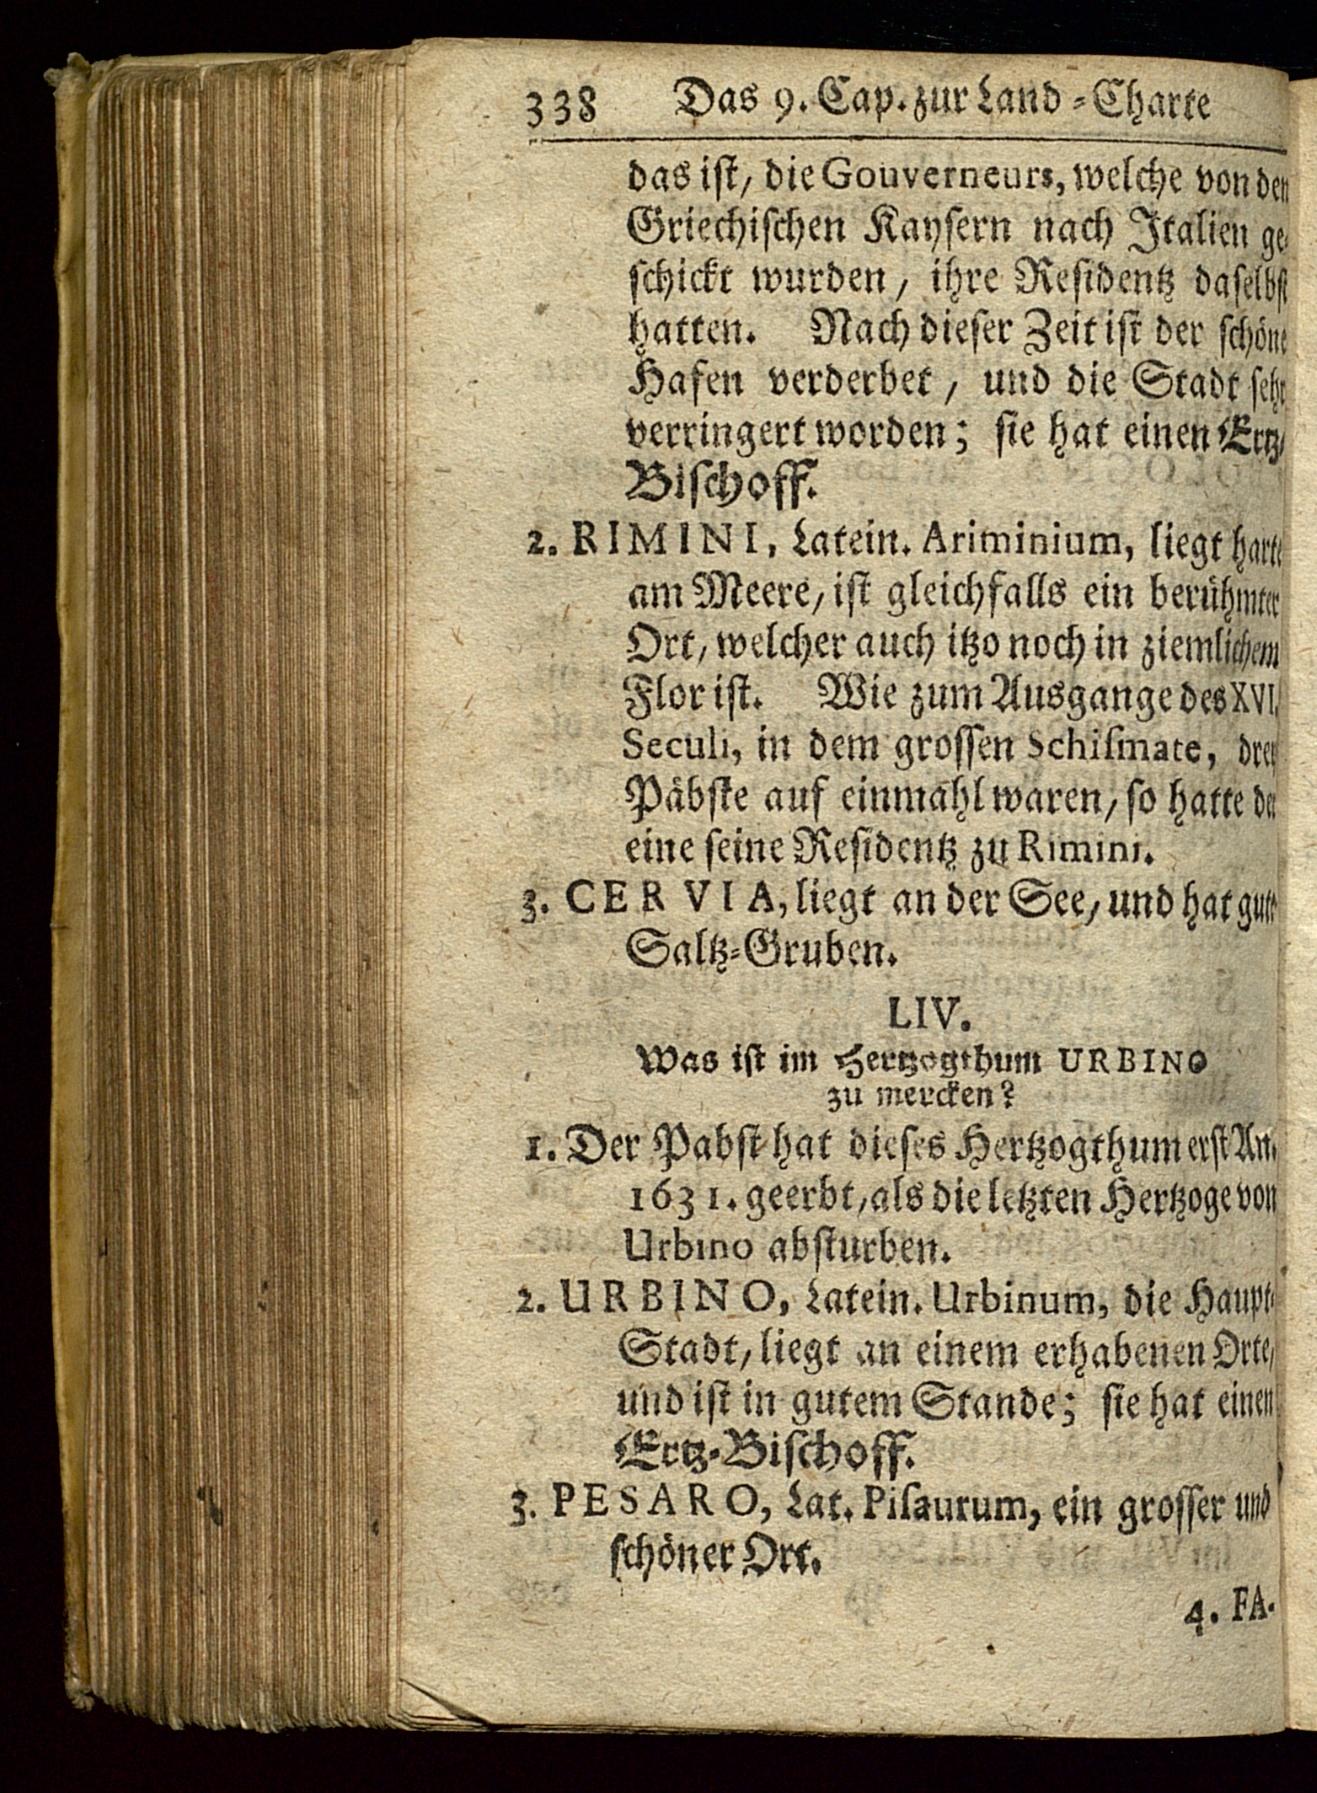 338 Das 9. Cap. zur Land-Charte
das ist, die Gouverneurs, welche von den
Griechischen Kaysern nach Italien ge-
schickt wurden, ihre Residentz daselbst
hatten. Nach dieser Zeit ist der schöne
Hafen verderbet, und die Stadt sehr
verringert worden; sie hat einen Ertz-
Bischoff.
2. RIMINI, Latein. Ariminium, liegt harte
am Meere, ist gleichfalls ein berühmter
Ort, welcher auch itzo noch in ziemlichem
Flor ist. Wie zum Ausgange des XVI.
Seculi, in dem grossen Schismate, drey
Päbste auf einmahl waren, so hatte der
eine seine Residentz zu Rimini.
3. CERVIA, liegt an der See, und hat gute
Saltz-Gruben.
LIV.
Was ist im Hertzogthum URBINO
zu mercken?
1. Der Pabst hat dieses Hertzogthum erst An.
1631. geerbt, als die letzten Hertzoge von
Urbino absturben.
2. URBINO, Latein. Urbinum, die Haupt-
Stadt, liegt an einem erhabenen Orte,
und ist in gutem Stande; sie hat einen
Ertz-Bischoff.
3. PESARO, Lat. Pisaurum, ein grosser und
schöner Ort.
4. FA-